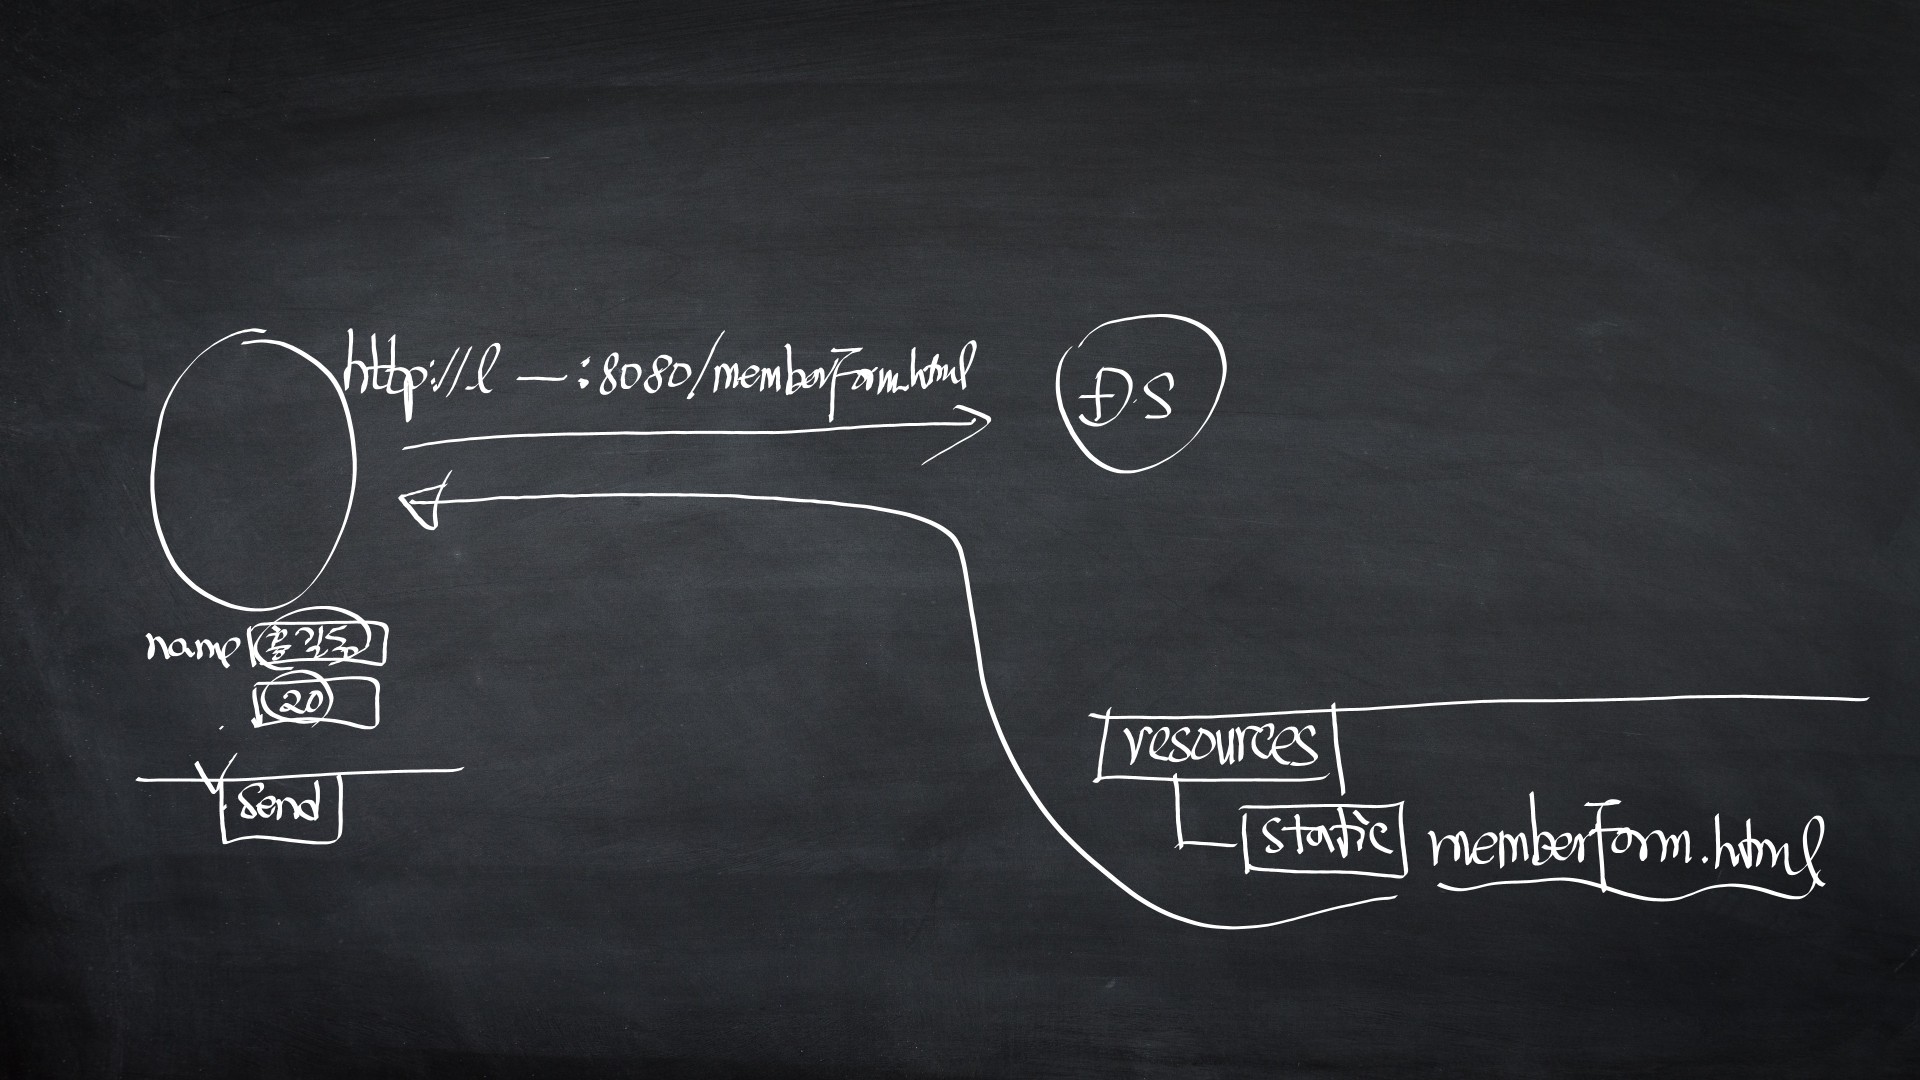 http://l — :8080/memberForm.html
D.S
name 홍길동
20
send
resources
static memberForm.html